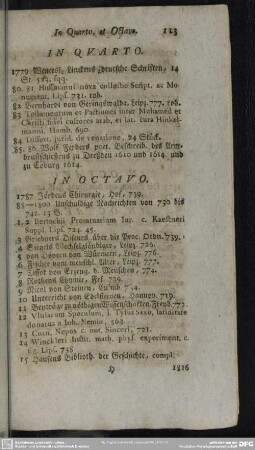 In Quarto, et Octavo. 113
IN QVARTO.
1779 Wenceslai Linckens deutsche Schriften, 14
St. 524. sqq.
80. 81 Hoffmanni nova collectio Script. ac Mo-
nument. Lips. 731. rob.
82 Bernhardi von Geringswalda. Leipz. 777. rob.
83 Testamentum et Pactiones inter Muhamed et
Christi fidei cultores arab. et lat. cura Hinkel-
manni. Hamb. 690.
84 Dissert. jurid. de venatione, 24 Stück.
85. 86 Wolf Ferbers poet. Beschreib. des Arm-
brustschießens zu Dreßden 1610 und 1614. und
zu Coburg 1614.
IN OCTAVO.
1787 Jördens Chirurgie, Hof, 739.
88—1800 Unschuldige Nachrichten von 730 bis
742. 13 B.
1. 2 Bertochii Promtuarium Iur. c. Kaestneri
Suppl. Lips. 724. 45.
3 Griebners Discurs über die Proc. Ordn. 739.
4 Siegels Wechselgläubiger, Leipz. 726.
5 van Doevern von Würmern, Leipz. 776.
6 Fischer vom menschl. Alter, Leipz. 777.
7 Tissot von Erzeug. d. Menschen, 774.
8 Rothens Chymie, Lpz. 739.
9 Nicol von Steinen, Culmb 734.
10 Unterricht von Edelsteinen, Hannov. 719.
11 Beyträge zu nöthigen Wissenschaften, Freyb.
12 Vlularum Speculum, s. Tylus Saxo, latinitate
donatus a Ioh. Nemio, 563.
13 Corn. Nepos c. not. Sinceri, 721.
14 Winckleri Instit. math. phys. experiment. c.
fig. Lips 738
15 Hausens Biblioth. der Geschichte, compl.
1816